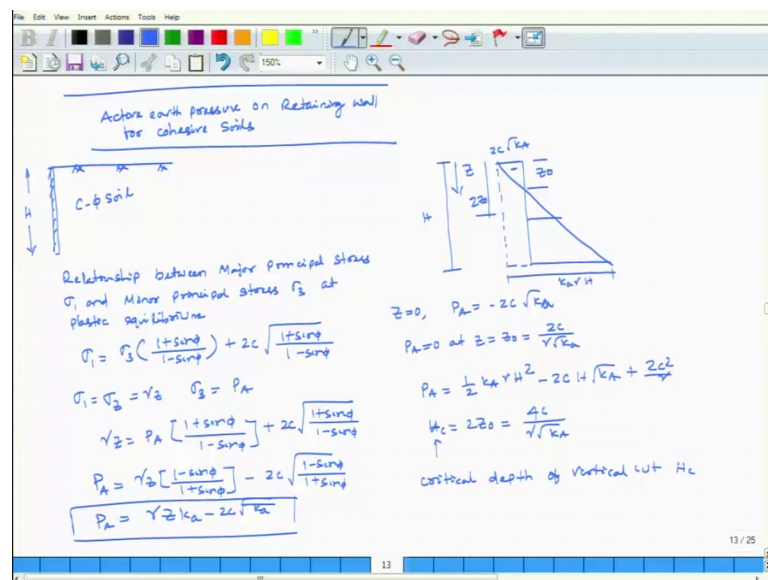 File Edit View Insert Actions Tools Help
B I
150%
Active earth pressure on Retaining wall
for cohesive Soils
H
C-ϕ soil
Relationship between Major principal stress
σ₁ and Minor principal stress σ₃ at
plastic equilibrium
σ₁ = σ₃ (1+sinϕ / 1-sinϕ) + 2c √(1+sinϕ / 1-sinϕ)
σ₁ = σ_z = γz σ₃ = P_A
γz = P_A [1+sinϕ / 1-sinϕ] + 2c √(1+sinϕ / 1-sinϕ)
P_A = γz [1-sinϕ / 1+sinϕ] - 2c √(1-sinϕ / 1+sinϕ)
P_A = γ z k_a - 2c √k_a
2c √K_A
z
z₀
-
2z₀
H
k_a γ H
z=0, P_A = -2c √k_a
P_A=0 at z = z₀ = 2c / γ√k_a
P_A = 1/2 k_A γ H² - 2c H √k_A + 2c² / γ
H_c = 2z₀ = 4c / γ√k_A
↑
critical depth of vertical cut H_c
13 / 25
13